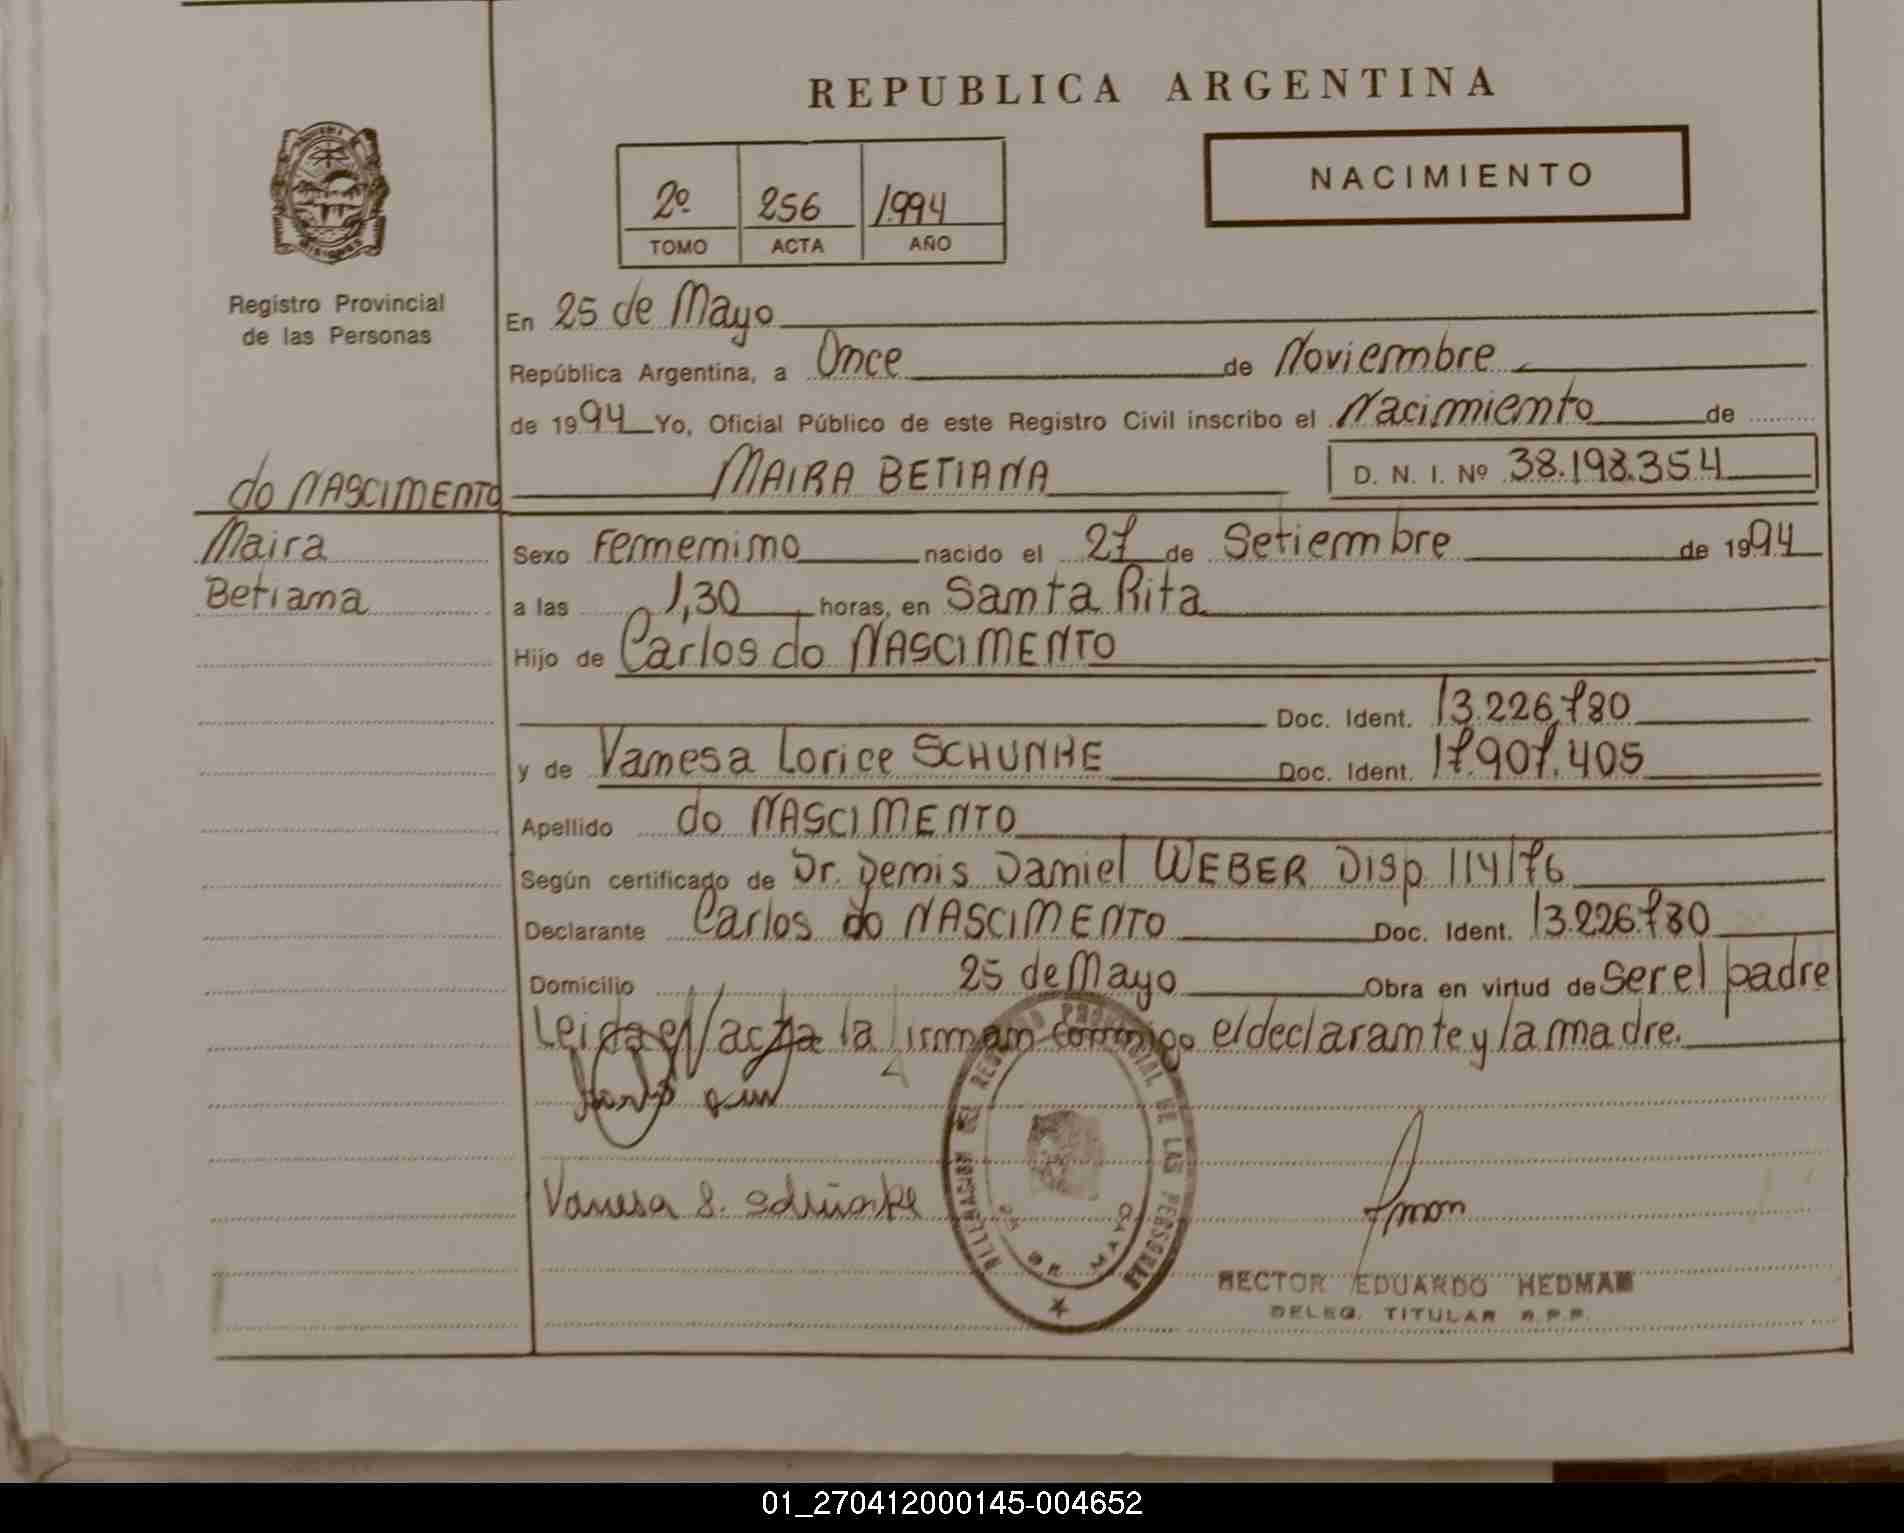 REPUBLICA ARGENTINA
NACIMIENTO
2º 256 1994
TOMO ACTA AÑO
Registro Provincial
de las Personas
En 25 de Mayo
República Argentina, a Once de Noviembre
de 1994 Yo, Oficial Público de este Registro Civil inscribo el Nacimiento de
do NASCIMENTO MAIRA BETIANA D. N. I. Nº 38.198.354
Maira Sexo Femenino nacido el 27 de Setiembre de 1994
Betiana a las 1,30 horas, en Santa Rita
Hijo de Carlos do NASCIMENTO
Doc. Ident. 13.226.780
y de Vanesa Lorice SCHUNKE Doc. Ident. 17.907.405
Apellido do NASCIMENTO
Según certificado de Dr. Denis Daniel WEBER Disp 114/76
Declarante Carlos do NASCIMENTO Doc. Ident. 13.226.780
Domicilio 25 de Mayo Obra en virtud de ser el padre
Leida el acta la firman conmigo el declarante y la madre.
DELEGACION DEL REGISTRO PROVINCIAL DE LAS PERSONAS
25 DE MAYO
Vanesa L. Schunke
HECTOR EDUARDO HEDMAN
DELEG. TITULAR R.P.P.
01_270412000145-004652